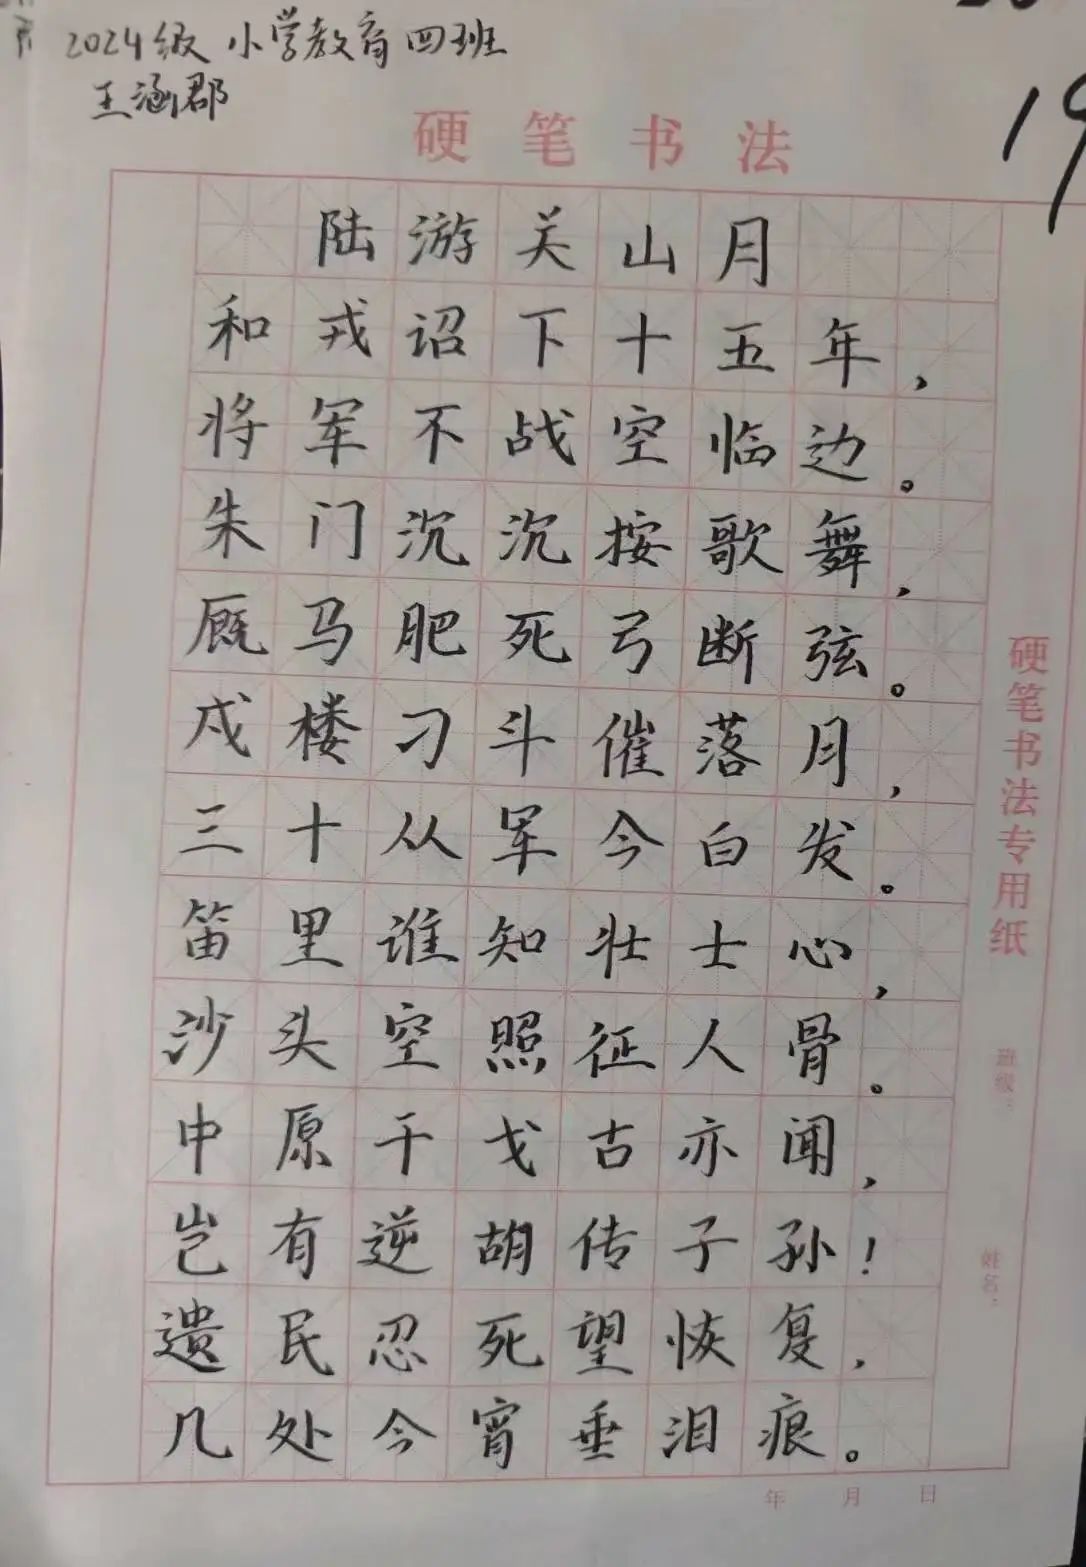 2024级 小学教育四班
王涵郡
19
硬笔书法
陆游关山月
和戎诏下十五年,
将军不战空临边。
朱门沉沉按歌舞,
厩马肥死弓断弦。
戍楼刁斗催落月,
三十从军今白发。
笛里谁知壮士心,
沙头空照征人骨。
中原干戈古亦闻,
岂有逆胡传子孙!
遗民忍死望恢复,
几处今宵垂泪痕。
硬笔书法专用纸
班级:
姓名:
年 月 日